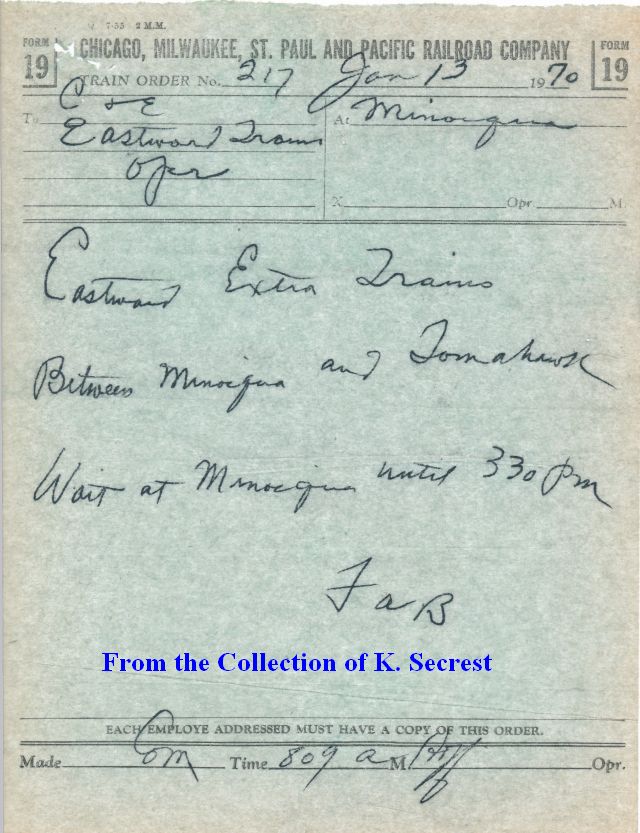 7-55 2 M.M.
FORM 19 CHICAGO, MILWAUKEE, ST. PAUL AND PACIFIC RAILROAD COMPANY FORM 19
TRAIN ORDER No. 217 Jan 13 1970
To C & E At Minocqua
Eastward Trains
Opr
X Opr. M.
Eastward Extra Trains
Between Minocqua and Tomahawk
Wait at Minocqua until 330 pm
F a B
From the Collection of K. Secrest
EACH EMPLOYE ADDRESSED MUST HAVE A COPY OF THIS ORDER.
Made Com Time 809 a M. Opr.